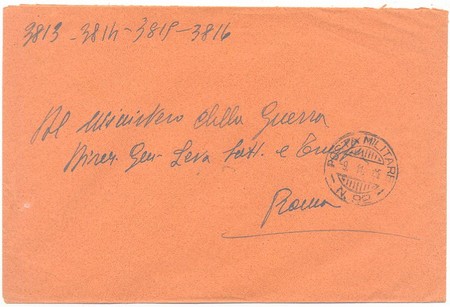 3813 - 3814 - 3815 - 3816
Al Ministero della Guerra
Direz. Gen. Leva Sott. e Truppa
Roma
POSTA MILITARE
N. 92